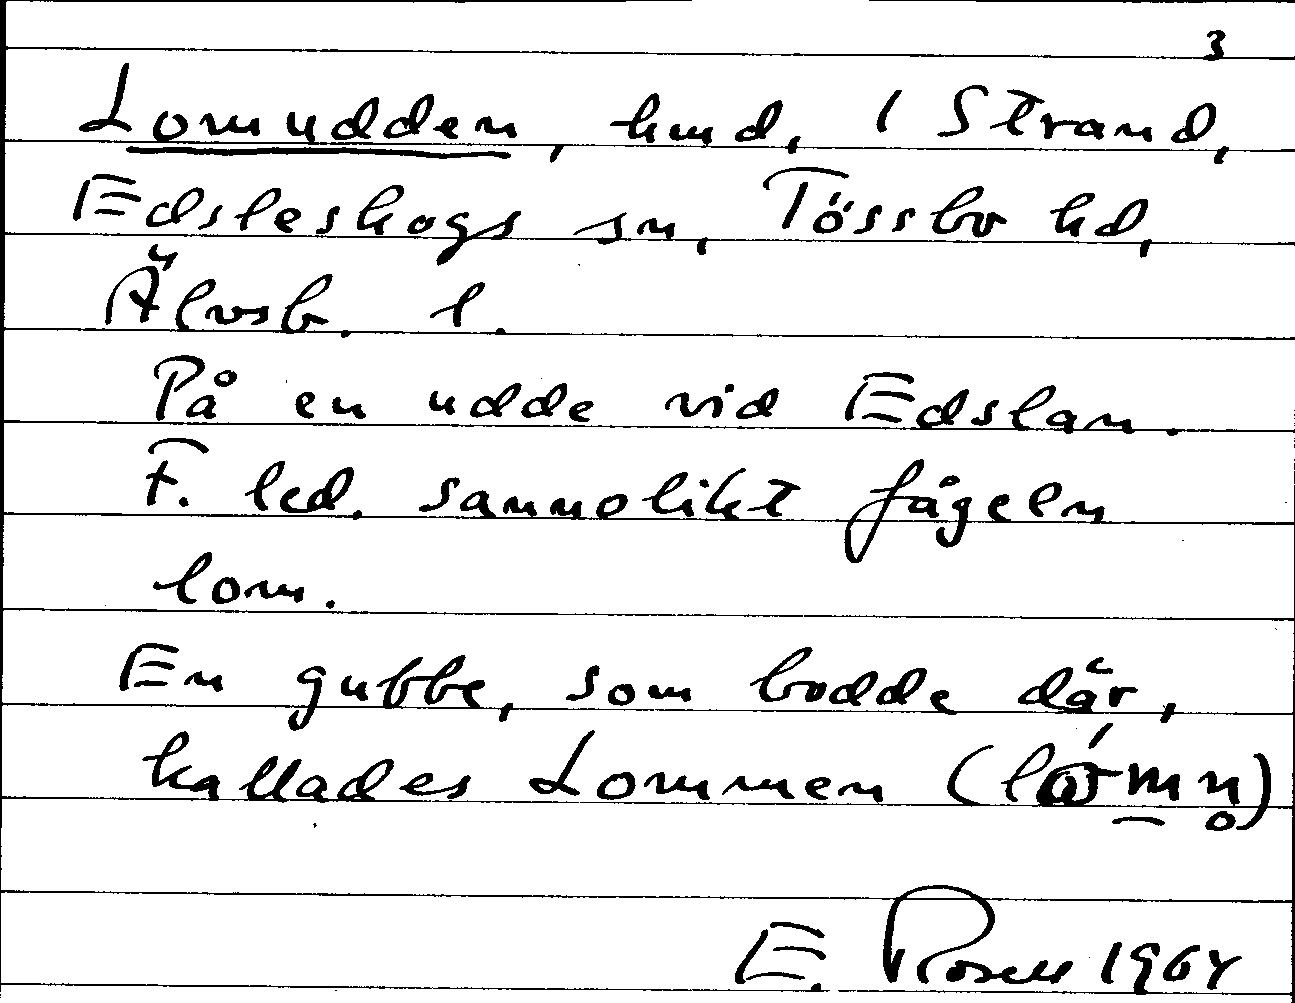 3
Lomudden, hmd, 1 Strand,
Edsleskogs sn, Tössbo hd,
Älvsb. l.
På en udde vid Edslan.
F. led. sannolikt fågeln
lom.
En gubbe, som bodde där,
kallades Lommen
E. Rosell 1964